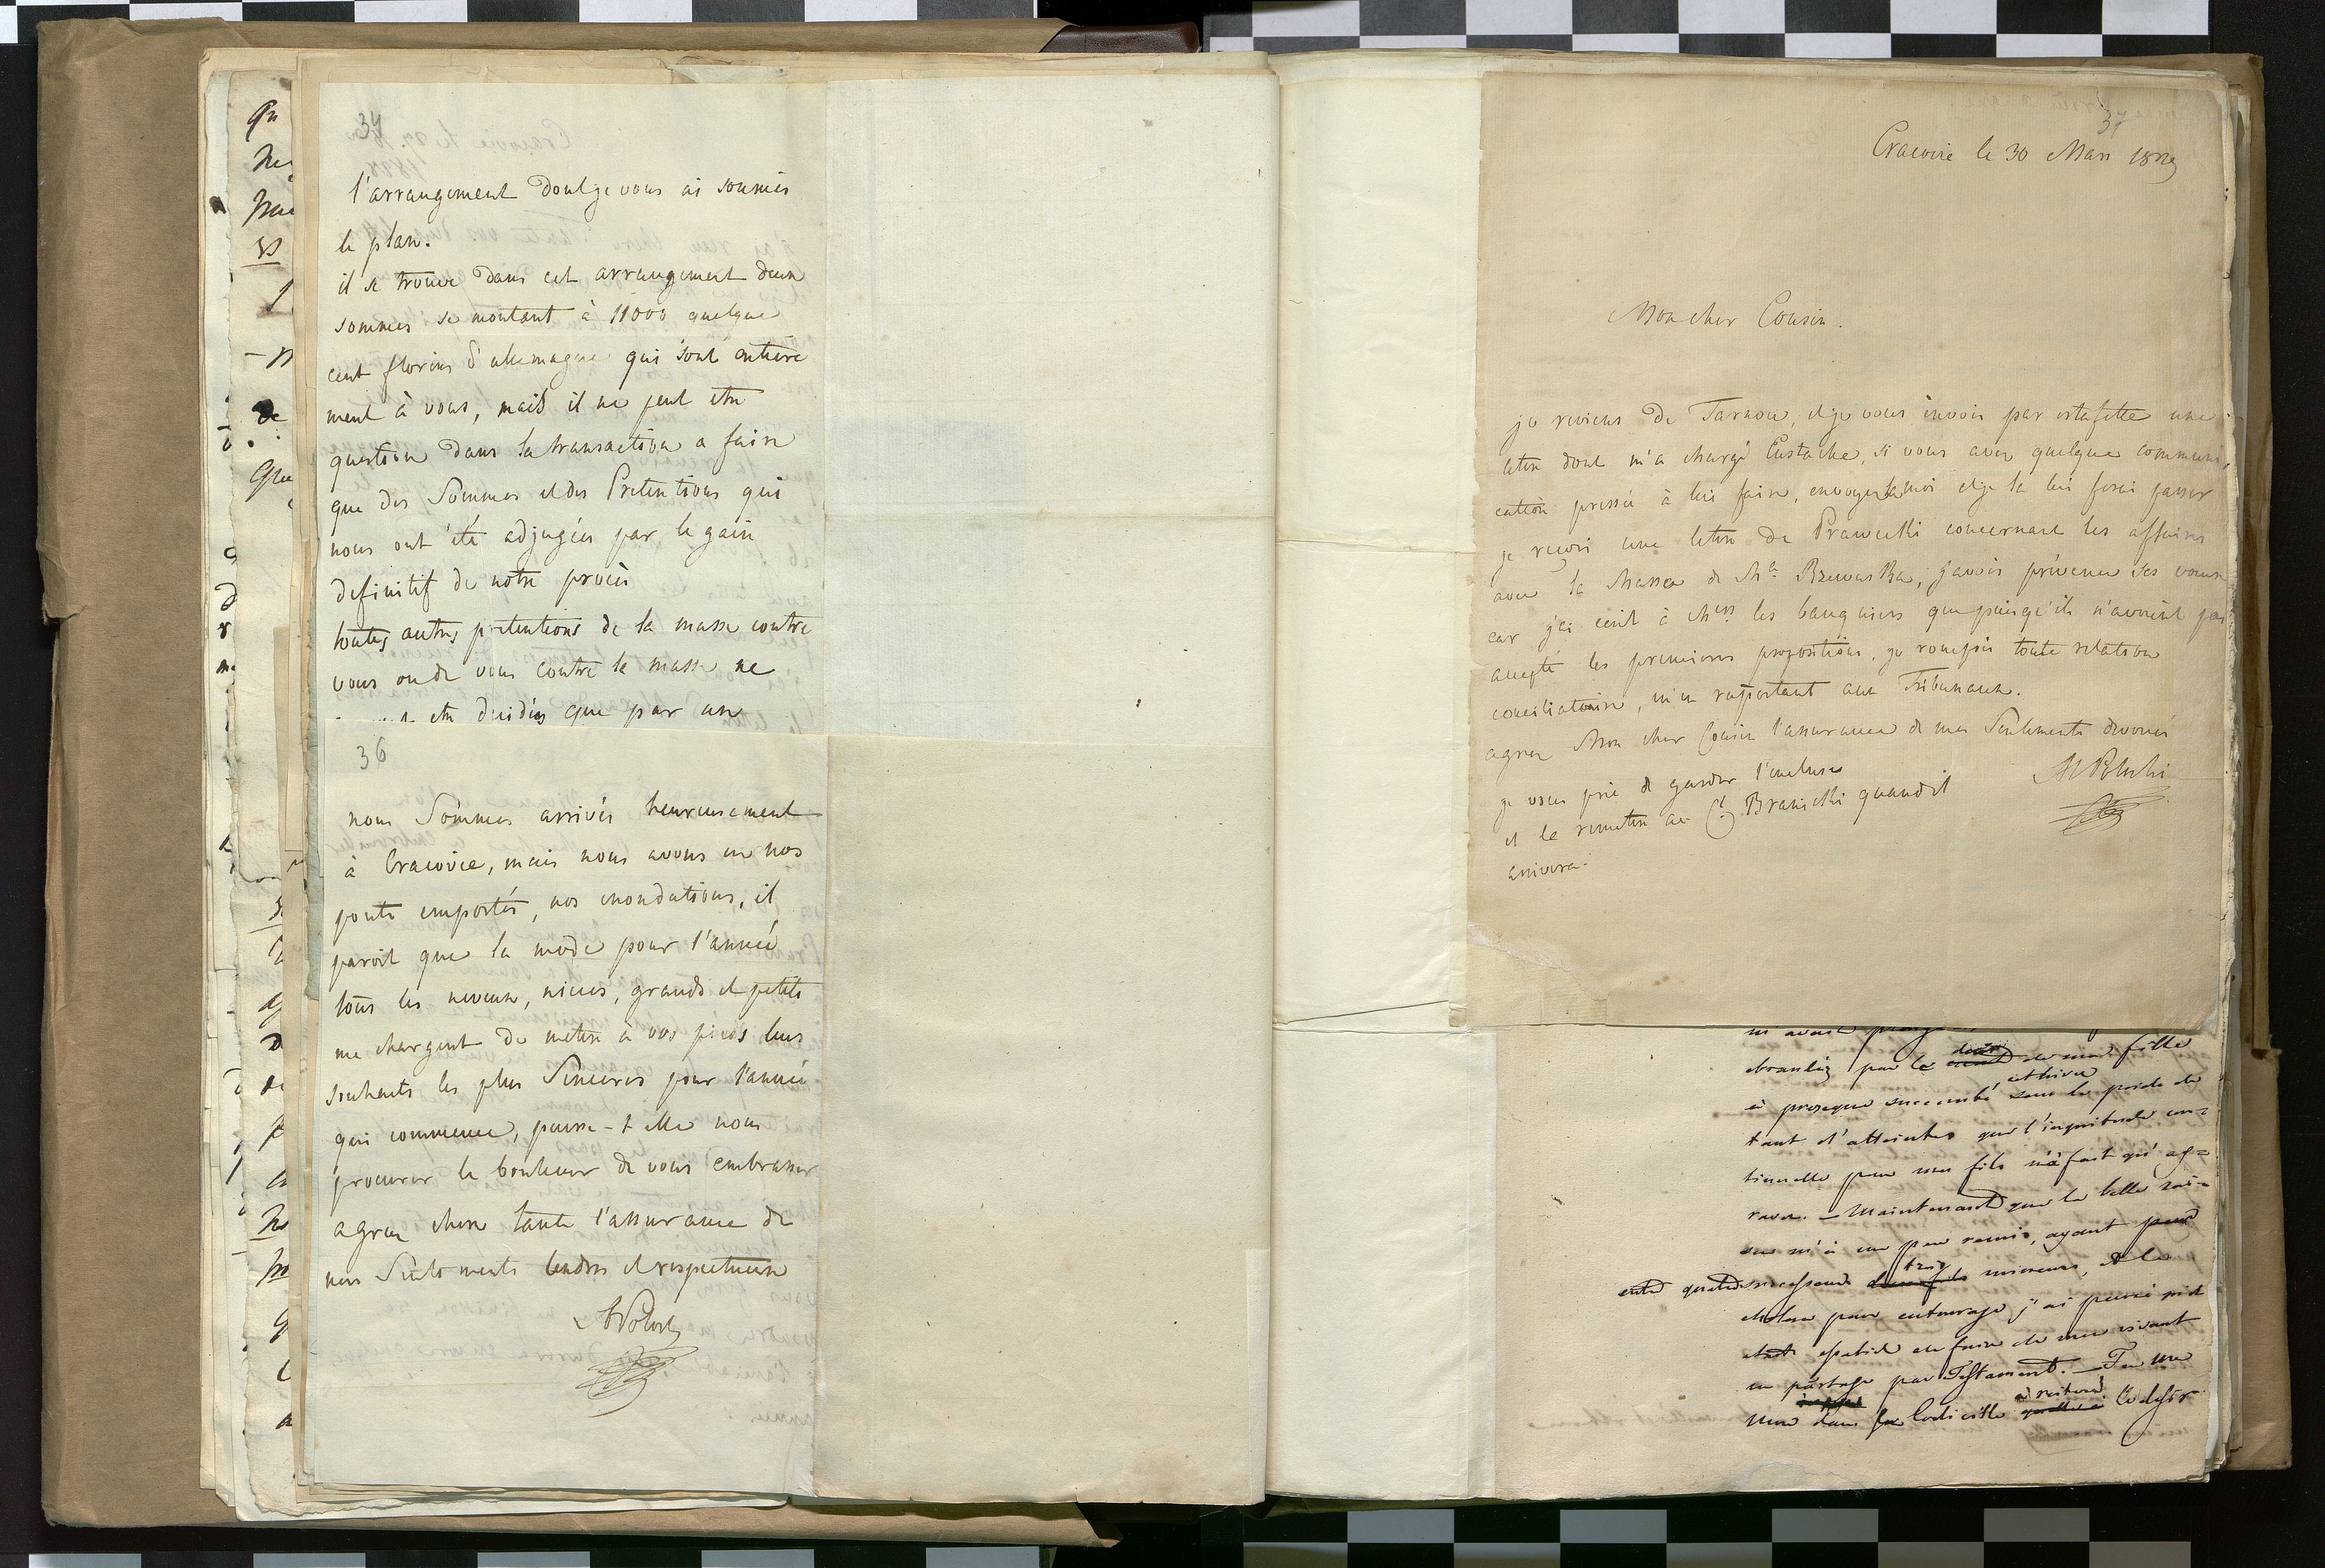 34
l'arrangement dont je vous ai soumis
le plan.
il se trouve dans cet arrangement deux
sommes se montant à 11000 quelque
cent florins d'allemagne qui sont entiere
ment à vous, mais il ne peut etre
question dans la transaction a faire
que des Sommes et des Pretentions qui
nous ont été adjugées par le gain
definitif de notre procès
toutes autres pretentions de la masse contre
vous ou de vous contre la masse ne
etre decidées que par un
36
nous Sommes arrivés heureusement
à Cracovie, mais nous avons eu nos
ponts emportés, nos inondations, il
paroit que la mode pour l'année
tous les neveux, nieces, grands et petits
me chargent de metre à vos pieds leurs
souhaits les plus Sinceres pour l'année
qui commence, puisse-t elle nous
procurer le bonheur de vous embrasser
agreez chere tante l'assurance de
nos Sentiments tendres et respectueux
APotocki
37
Cracovie le 30 Mars 1829
Mon cher Cousin.
je reviens de Tarnow, et je vous envois par estafette une
letre dont m'a chargé Eustache, si vous avez quelque communi,
cation pressée à lui faire, envoyez la moi et je la lui ferai passer
je reçois une letre de Prawecki concernant les affaires
avec la Massa de Me. Rzewuska, j'avois prévenu ses voeux
car j'ai ecrit à Mrs. les banquiers que puisqu'ils n'avoient pas
accepté les premieres propositions, je rompois toute relation
conciliatoire, m'en rapportant aux Tribunaux.
agreez Mon cher Cousin l'assurance de mes Sentiments devoués
APotocki
je vous prie de garder l'incluse
et le remetre au Ct. Branicki quand il
arrivera.
ebranlée par le deces de ma fille
à presque succombé cet hiver sous le poids de
tant d'atteintes que l'inquietude con=
tinuelle pour mes fils n'a fait qu'ag=
raver. — Maintenant que la belle sai=
son m'a un peu remis, ayant pour
trois mineurs, et le
cholera pour entourage j'ai pensé
de faire de mon vivant
un partage par Testament. — Feu ma
Mere dans Codicille a reiteré le desir